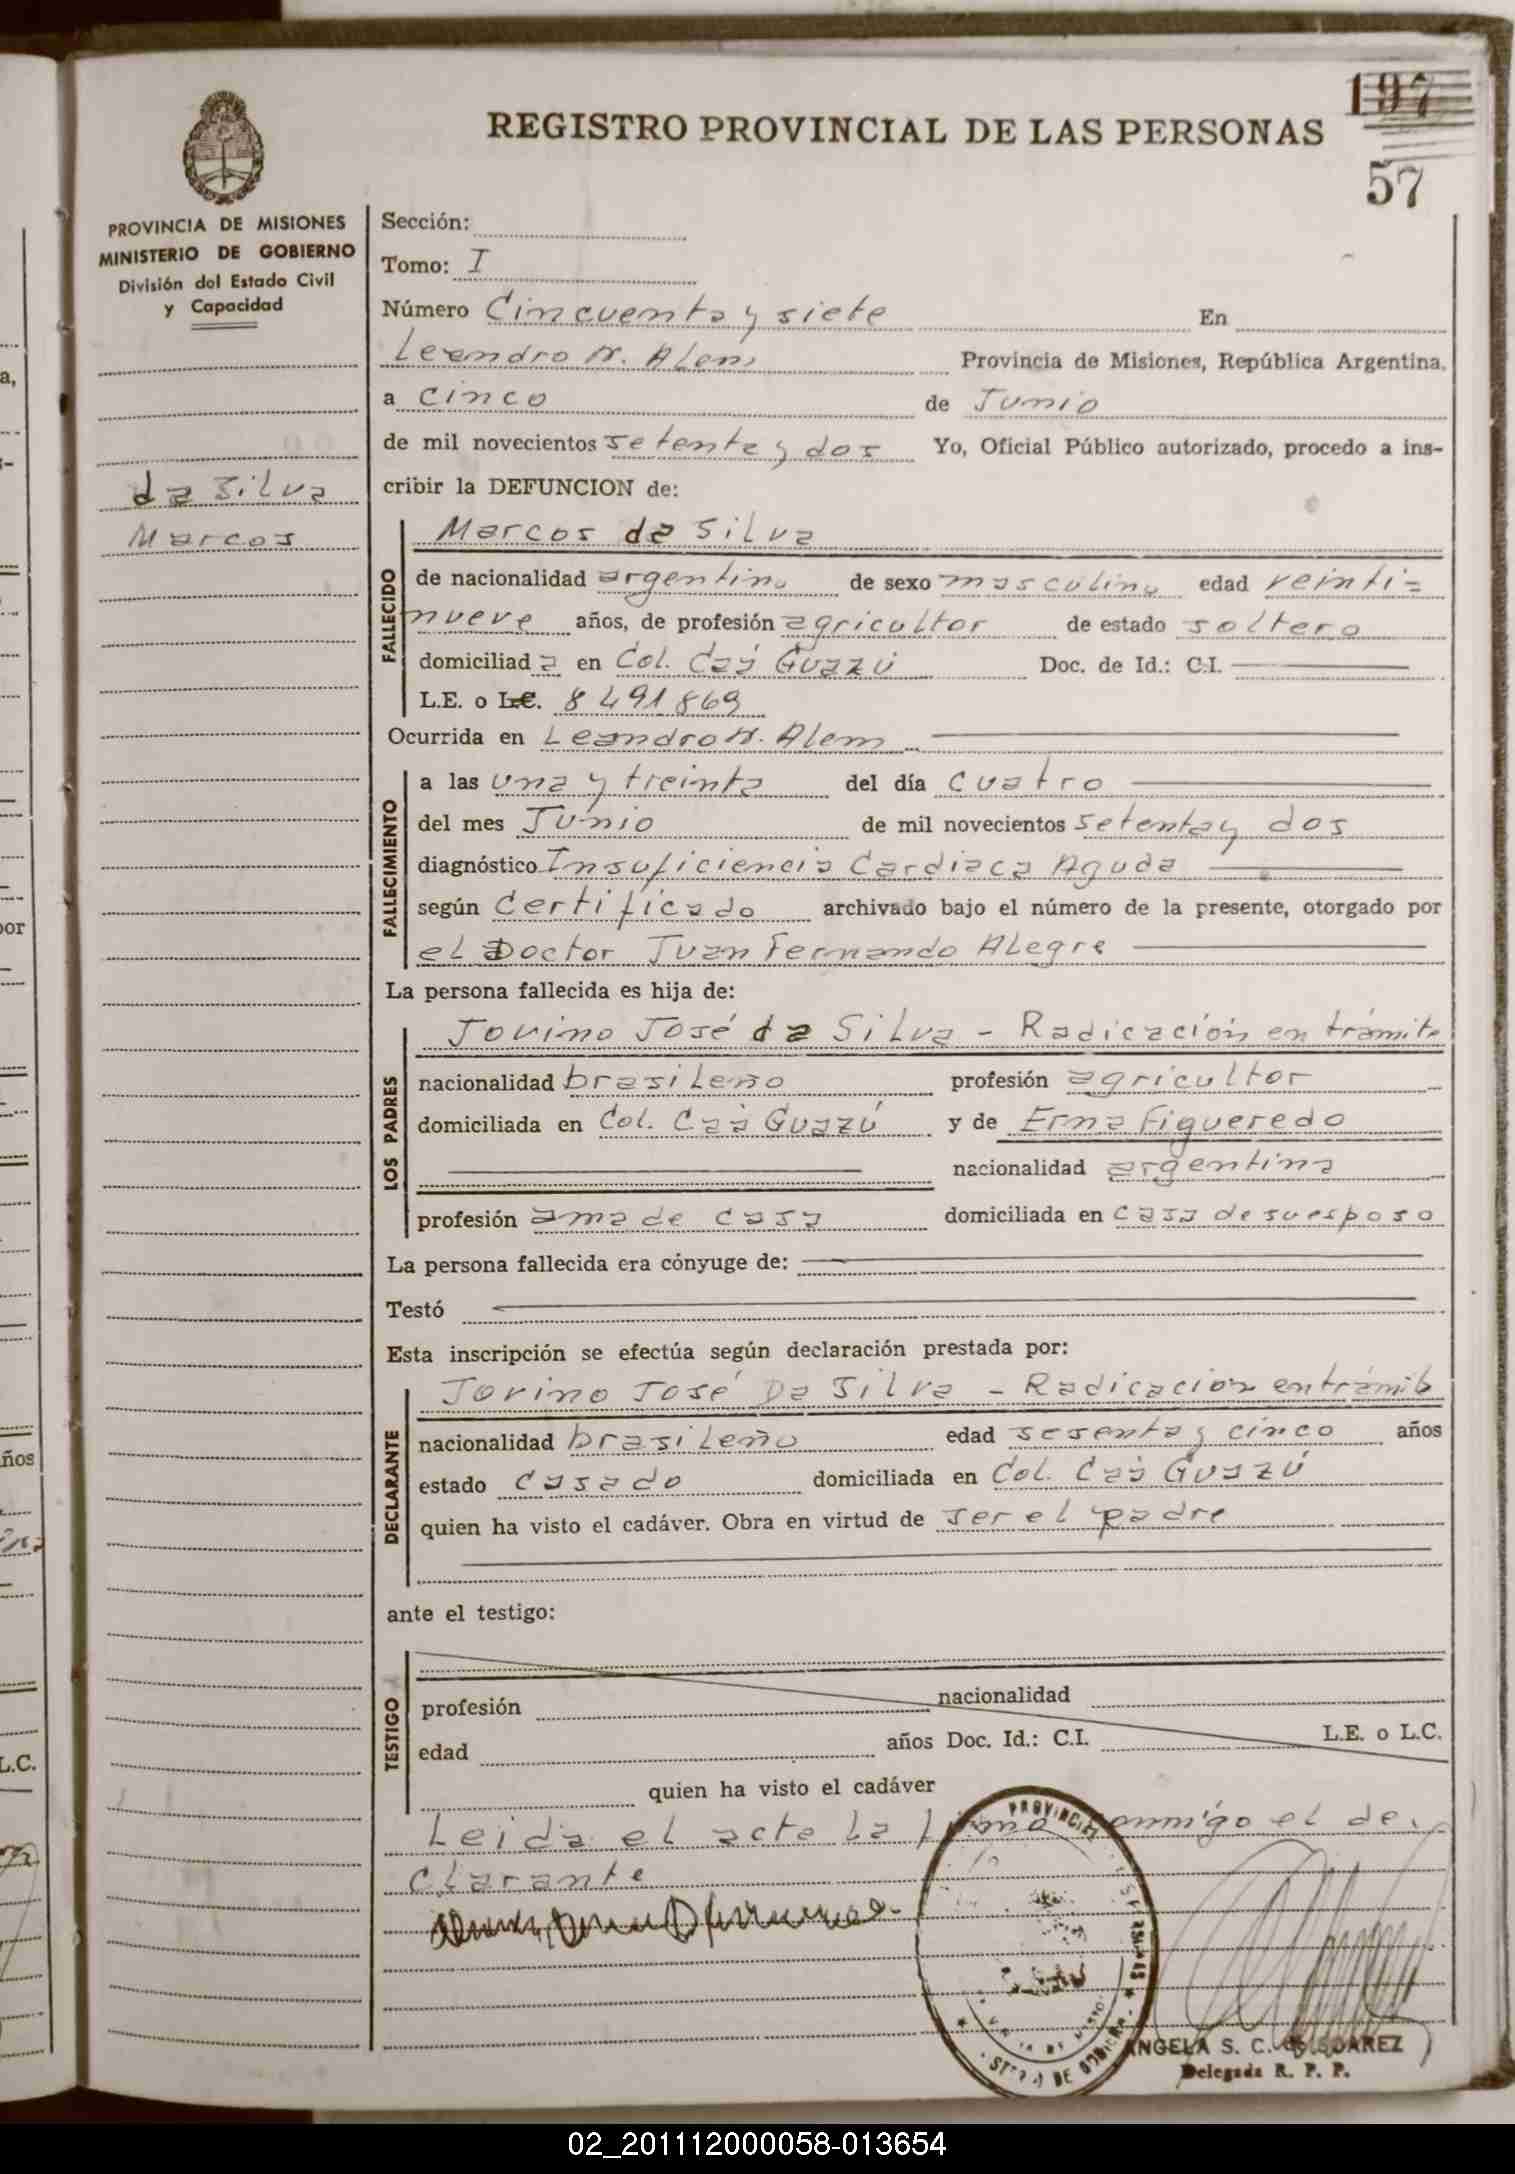 197
REGISTRO PROVINCIAL DE LAS PERSONAS
57
PROVINCIA DE MISIONES
MINISTERIO DE GOBIERNO
División del Estado Civil
y Capacidad
da Silva
Marcos
Sección:
Tomo: I
Número Cincuenta y siete En
Leandro N. Alem Provincia de Misiones, República Argentina,
a cinco de Junio
de mil novecientos setenta y dos Yo, Oficial Público autorizado, procedo a ins-
cribir la DEFUNCION de:
FALLECIDO
Marcos da Silva
de nacionalidad argentino de sexo masculino edad veinti=
nueve años, de profesión agricultor de estado soltero
domiciliada en Col. Caá Guazú Doc. de Id.: C.I.
L.E. o L.C. 8491869
Ocurrida en Leandro N. Alem
FALLECIMIENTO
a las una y treinta del día cuatro
del mes Junio de mil novecientos setenta y dos
diagnóstico Insuficiencia Cardiaca Aguda
según Certificado archivado bajo el número de la presente, otorgado por
el Doctor Juan Fernando Alegre
La persona fallecida es hija de:
LOS PADRES
Jovino José da Silva - Radicación en trámite
nacionalidad brasileño profesión agricultor
domiciliada en Col. Caá Guazú y de Erma Figueredo
nacionalidad argentina
profesión ama de casa domiciliada en casa de su esposo
La persona fallecida era cónyuge de:
Testó
Esta inscripción se efectúa según declaración prestada por:
DECLARANTE
Jovino José Da Silva - Radicación en trámite
nacionalidad brasileño edad sesenta y cinco años
estado casado domiciliada en Col. Caá Guazú
quien ha visto el cadáver. Obra en virtud de ser el padre
ante el testigo:
TESTIGO
profesión nacionalidad
edad años Doc. Id.: C.I. L.E. o L.C.
quien ha visto el cadáver
Leida el acta la firma conmigo el de-
clarante
ANGELA S. C. de SUAREZ
Delegada R. P. P.
02_201112000058-013654